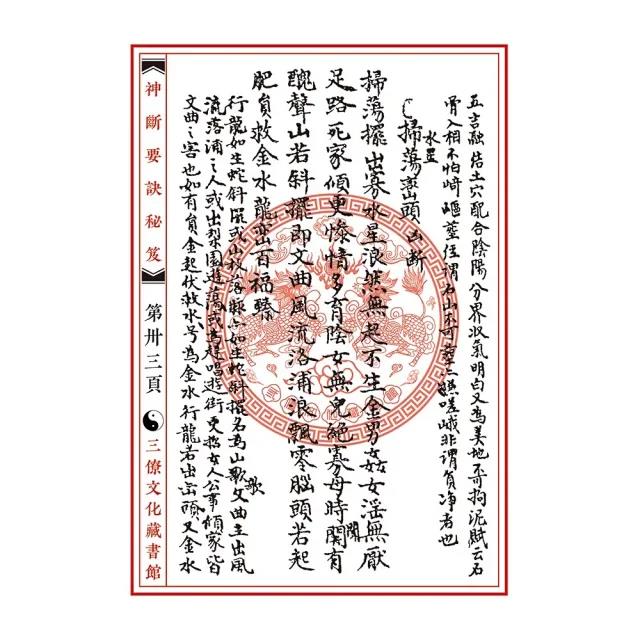 五言融結土穴配合陰陽分界收氣明白又為美地不可拘泥賦云石
骨入相不怕崎嶇莖徑謂石山不可葬
嵯峨非謂負净者也
水星
掃蕩巒頭凶斷
掃蕩擺出寡水星浪然無起不生金男女姦淫無厭
足路死家傾更惨情多育陰女無兒絕寡母時関有
醜聲山若斜擺即文曲風流洛浦浪飄零腦頭若起
肥員救金水龍巒百福臻
行龍如生蛇斜擺或出枝落脉亦如生蛇斜擺名為山歌文曲主出風
流落浦之人或出梨園遊蕩或為邪唱遊街更招女人公事傾家皆
文曲之害也如有員金起伏救水号為金水行龍若出巒頭又金水
神斷要訣秘笈
第卅三頁
三僚文化藏書館